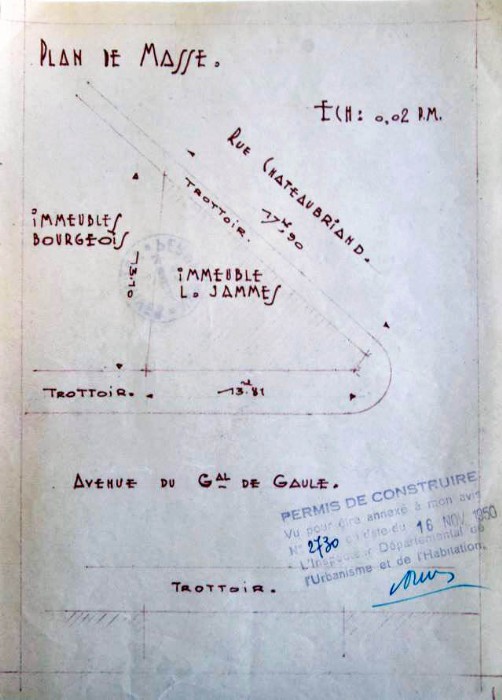 PLAN DE MASSE.
ECH: 0,02 P.M.
RUE CHATEAUBRIAND.
TROTTOIR.
17m90
IMMEUBLES
BOURGEOIS
13.10
IMMEUBLE
L. JAMMES
TROTTOIR.
13m81
AVENUE DU GAL DE GAULE.
PERMIS DE CONSTRUIRE
Vu pour être annexé à mon avis
N° 2730 du 16 NOV 1950
L'Inspecteur Départemental de
l'Urbanisme et de l'Habitation,
TROTTOIR.